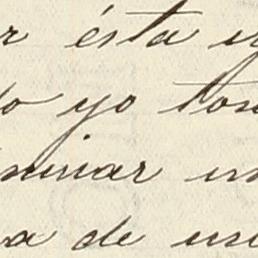 r ésta y
do yo ton
minar un
a de un